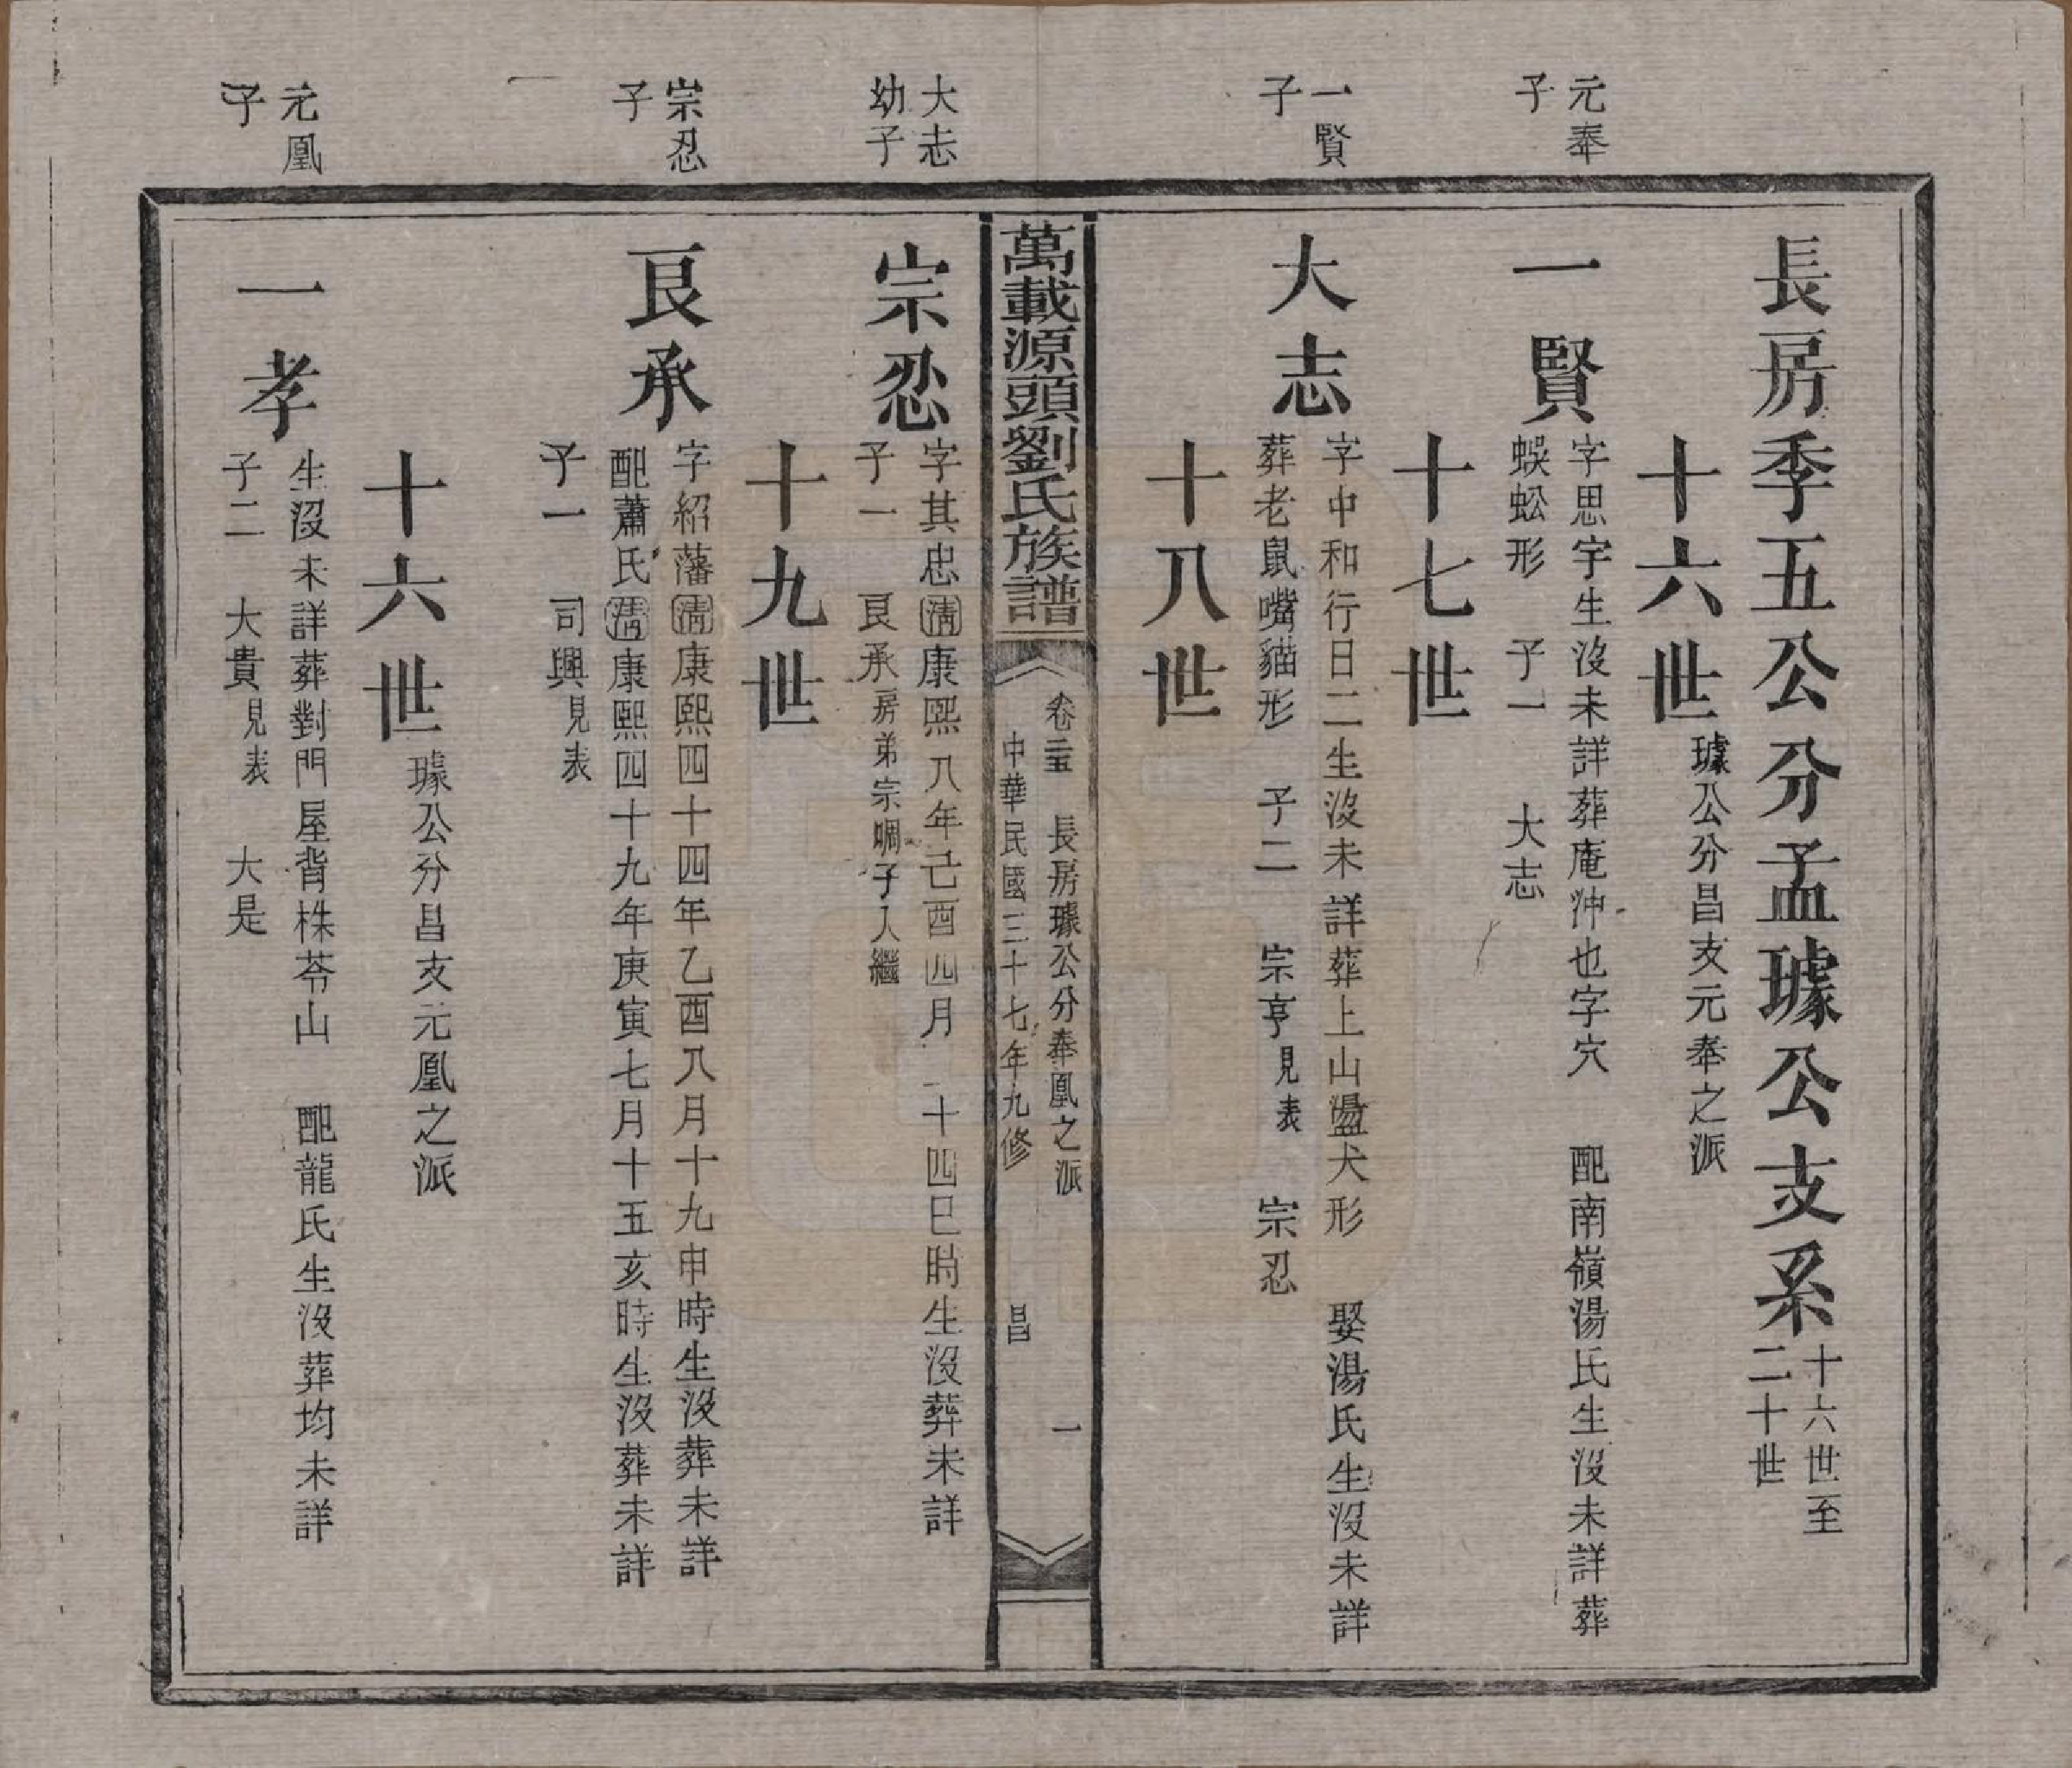 長房季五公分孟璩公支系
十六世至
二十世
十六世
璩公分昌支元奉之派
元奉
子
一賢
字思宇生沒未詳葬庵沖也字穴 配南嶺湯氏生沒未詳葬
蜈蚣形 子一 大志
十七世
一賢
子
大志
字中和行日二生沒未詳葬上山盪犬形 娶湯氏生沒未詳
葬老鼠嘴貓形 子二 宗亨見表 宗忍
十八世
萬載源頭劉氏族譜
卷二五 長房璩公分奉凰之派 一
中華民國三十七年九修 昌
大志
幼子
宗忍
字其忠清康熙八年己酉四月二十四巳時生沒葬未詳
子一 良承房弟宗晭子入繼
十九世
宗忍
子
良承
字紹藩清康熙四十四年乙酉八月十九申時生沒葬未詳
配蕭氏清康熙四十九年庚寅七月十五亥時生沒葬未詳
子一 司興見表
十六世
璩公分昌支元凰之派
元凰
子
一孝
生沒未詳葬對門屋背株苓山 配龍氏生沒葬均未詳
子二 大貴見表 大是